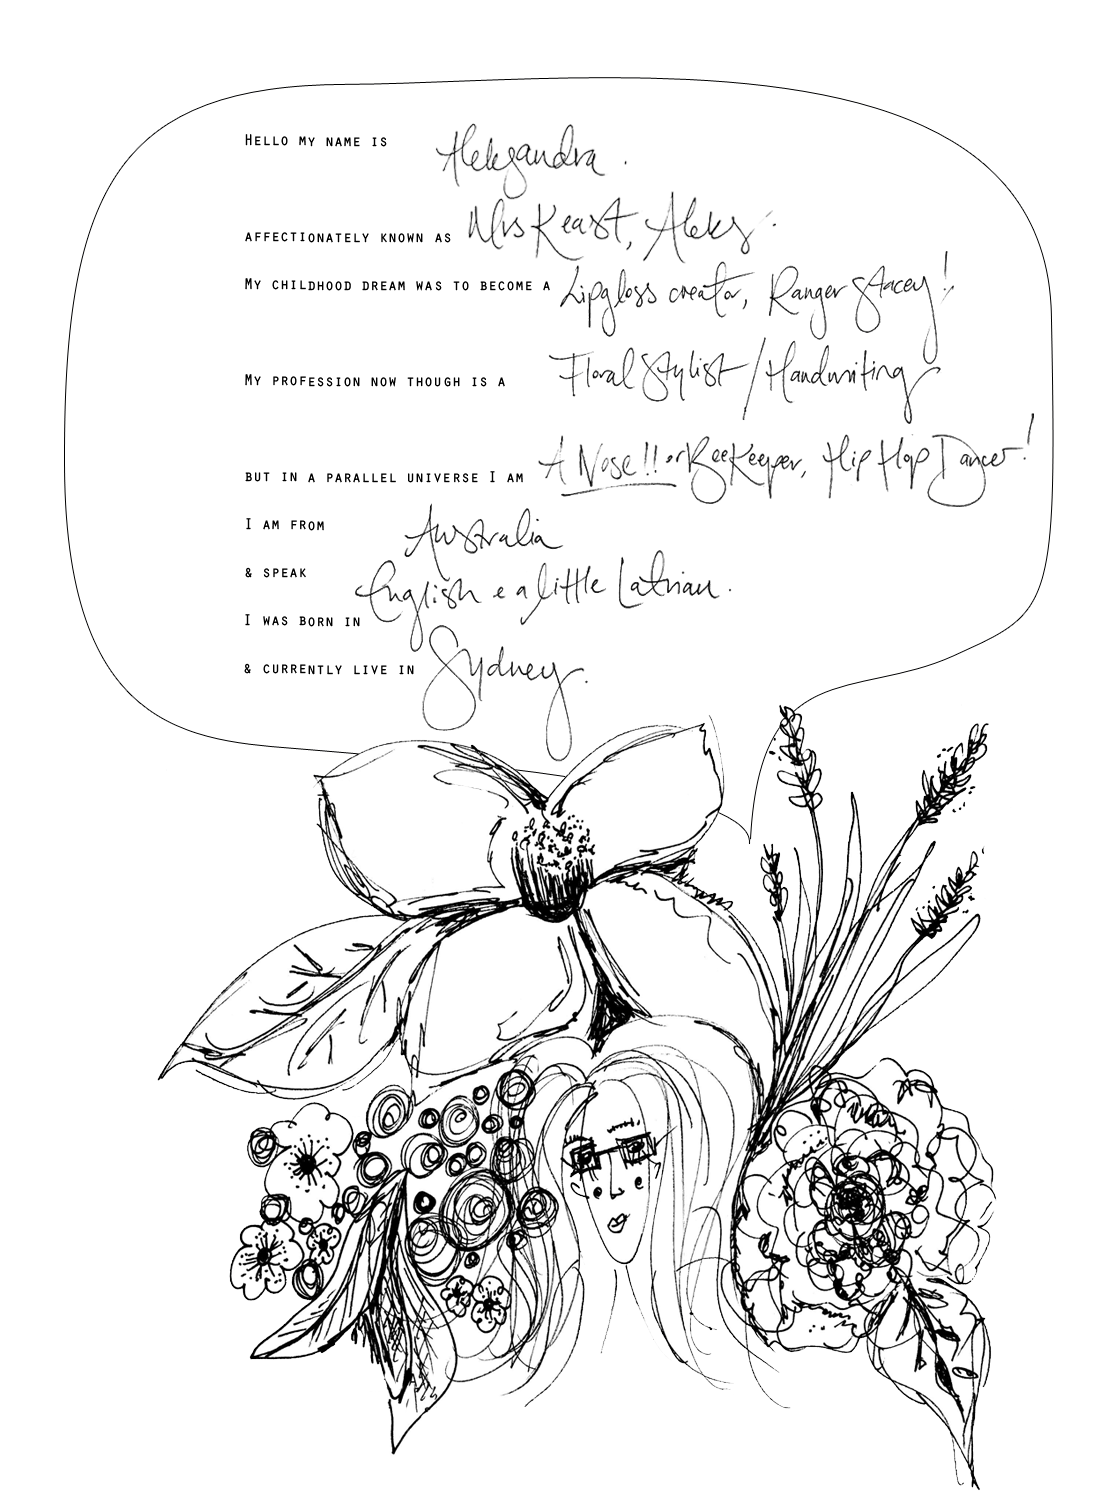 HELLO MY NAME IS Aleksandra.
AFFECTIONATELY KNOWN AS Mrs Keast, Aleks.
MY CHILDHOOD DREAM WAS TO BECOME A Lipgloss creator, Ranger Stacey!
MY PROFESSION NOW THOUGH IS A Floral Stylist/Handwriting
BUT IN A PARALLEL UNIVERSE I AM A Nose!! or BeeKeeper, Hip Hop Dancer!
I AM FROM Australia
& SPEAK English e a little Latvian.
I WAS BORN IN
& CURRENTLY LIVE IN Sydney.